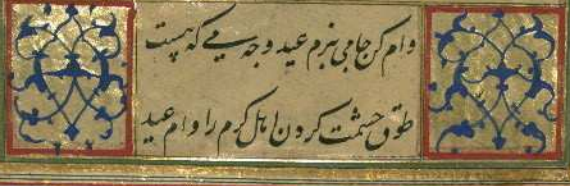 وام کن جامی ببزم عید وجه می که هست
طوق حشمت گردن اهل کرم را وام عید